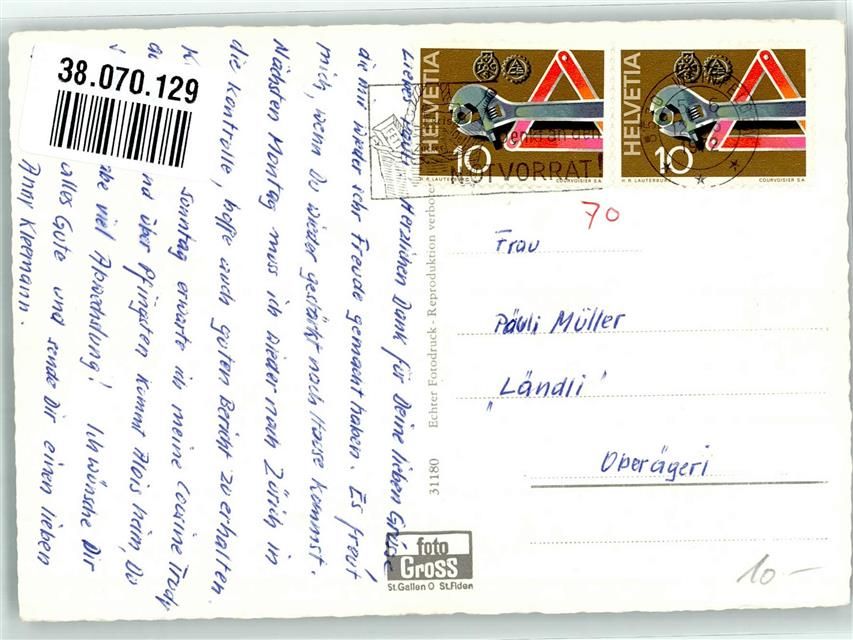 38.070.129
Liebe Päuli! Herzlichen Dank für Deine lieben Grüsse
die mir wieder sehr Freude gemacht haben. Es freut
mich, wenn Du wieder gestärkt nach Hause kommst.
Nächsten Montag muss ich wieder nach Zürich in
die Kontrolle, hoffe auch guten Bericht zu erhalten.
Sonntag erwarte ich meine Cousine Trudy
und über Pfingsten kommt Alois heim, Du
viel Abwechslung! Ich wünsche Dir
alles Gute und sende Dir einen lieben
Anny Kleemann.
HELVETIA
10
H.R. LAUTERBURG
COURVOISIER S.A.
HELVETIA
10
H.R. LAUTERBURG
COURVOISIER S.A.
denkt an den
NOTVORRAT!
70
Frau
Päuli Müller
"Ländli"
Oberägeri
31180 Echter Fotodruck - Reproduktion verboten
foto
Gross
St.Gallen O St.Fiden
10.-